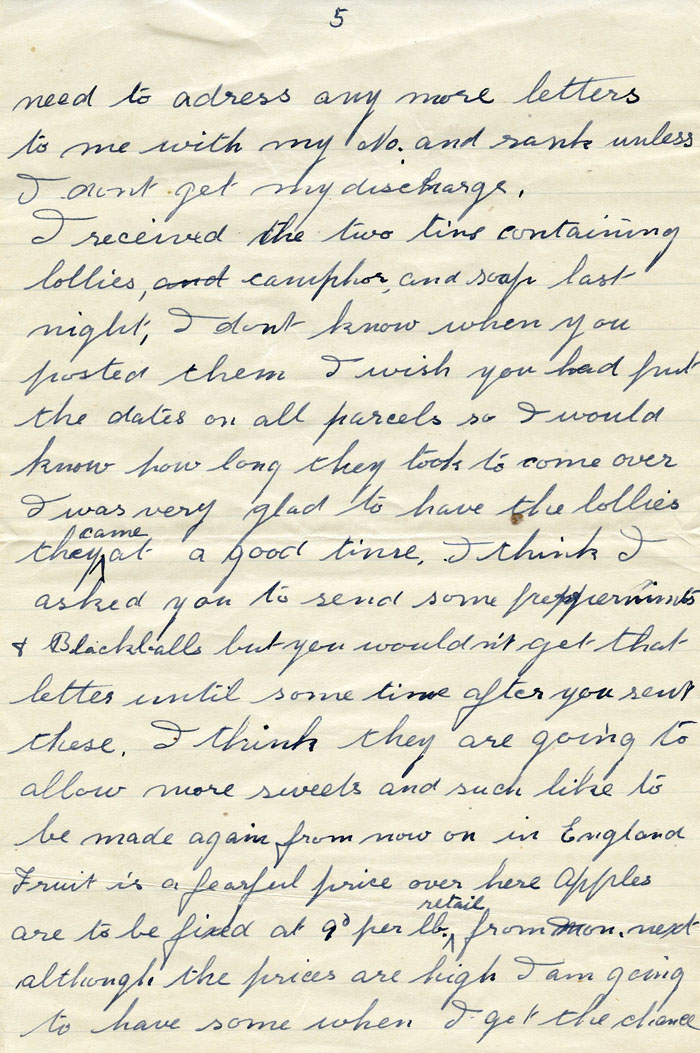 5
need to adress any more letters
to me with my No. and rank unless
I dont get my discharge.
I received the two tins containing
lollies, and camphor, and soap last
night, I dont know when you
posted them I wish you had put
the dates on all parcels so I would
know how long they took to come over
I was very glad to have the lollies
came
they at a good time. I think I
asked you to send some peppermints
& Blackballs but you wouldn't get that
letter until some time after you sent
these. I think they are going to
allow more sweets and such like to
be made again from now on in England
Fruit is a fearful price over here Apples
retail
are to be fixed at 9d per lb. from Mon. next
although the prices are high I am going
to have some when I get the chance